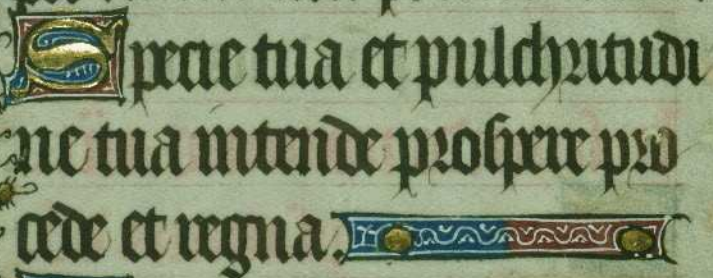 Specie tua et pulchritudi
ne tua intende prospere pro
cede et regna.